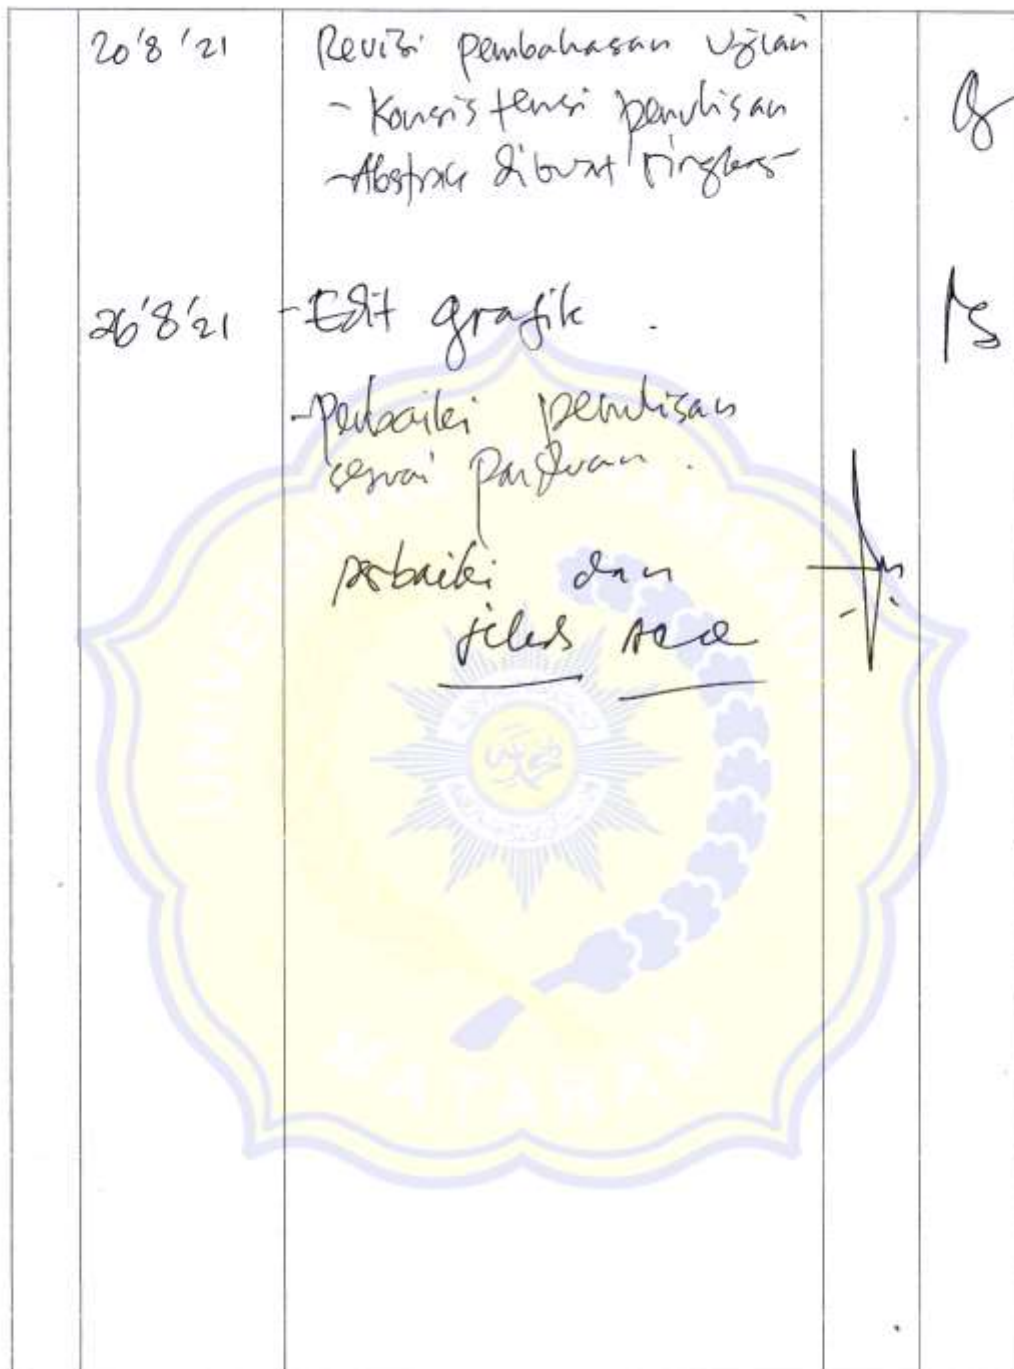 20'8'21 Revisi pembahasan Ujian
- Konsistensi penulisan
- Abstrak dibuat ringkas
26'8'21 - Edit grafik.
- Perbaiki penulisan
sesuai Panduan.
perbaiki dan
UNIVERSITAS MUHAMMADIYAH
MATARAM